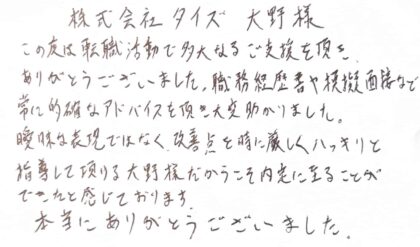 株式会社タイズ 大野様
この度は転職活動で多大なるご支援を頂き、
ありがとうございました。職務経歴書や模擬面接など
常に的確なアドバイスを頂き大変助かりました。
曖昧な表現ではなく、改善点を時に厳しくハッキリと
指導して頂ける大野様だからこそ内定に至ることが
できたと感じております。
本当にありがとうございました。